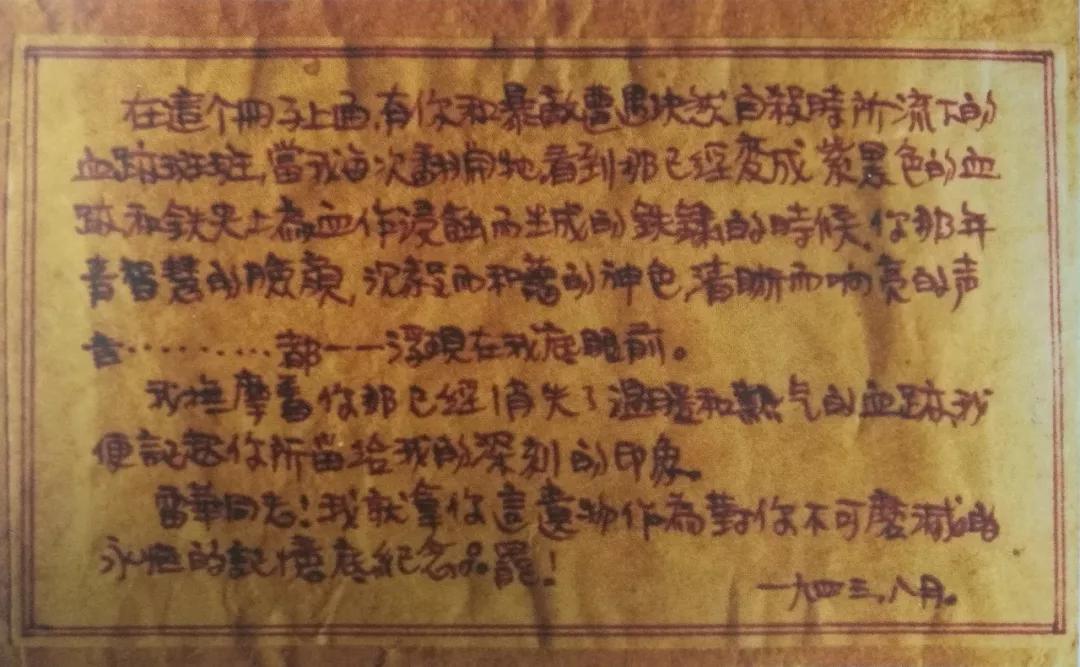 在這个冊子上面,有你和暴敵遭遇决然自殺時所流下的
血跡斑斑,當我每次翻開牠,看到那已經变成紫黑色的血
跡和铁夹上為血作浸蝕而生成的鉄鏽的時候,你那年
青智慧的臉龐,沉毅而和藹的神色,清晰而响亮的声
音………都一一浮現在我底眼前。
我撫摩着你那已經消失了溫暖和熱气的血跡,我
便記起你所留給我的深刻的印象。
雷華同志!我就拿你這遺物作為對你不可磨滅的
永恒的記憶底紀念品罷!
一九四三,八月。